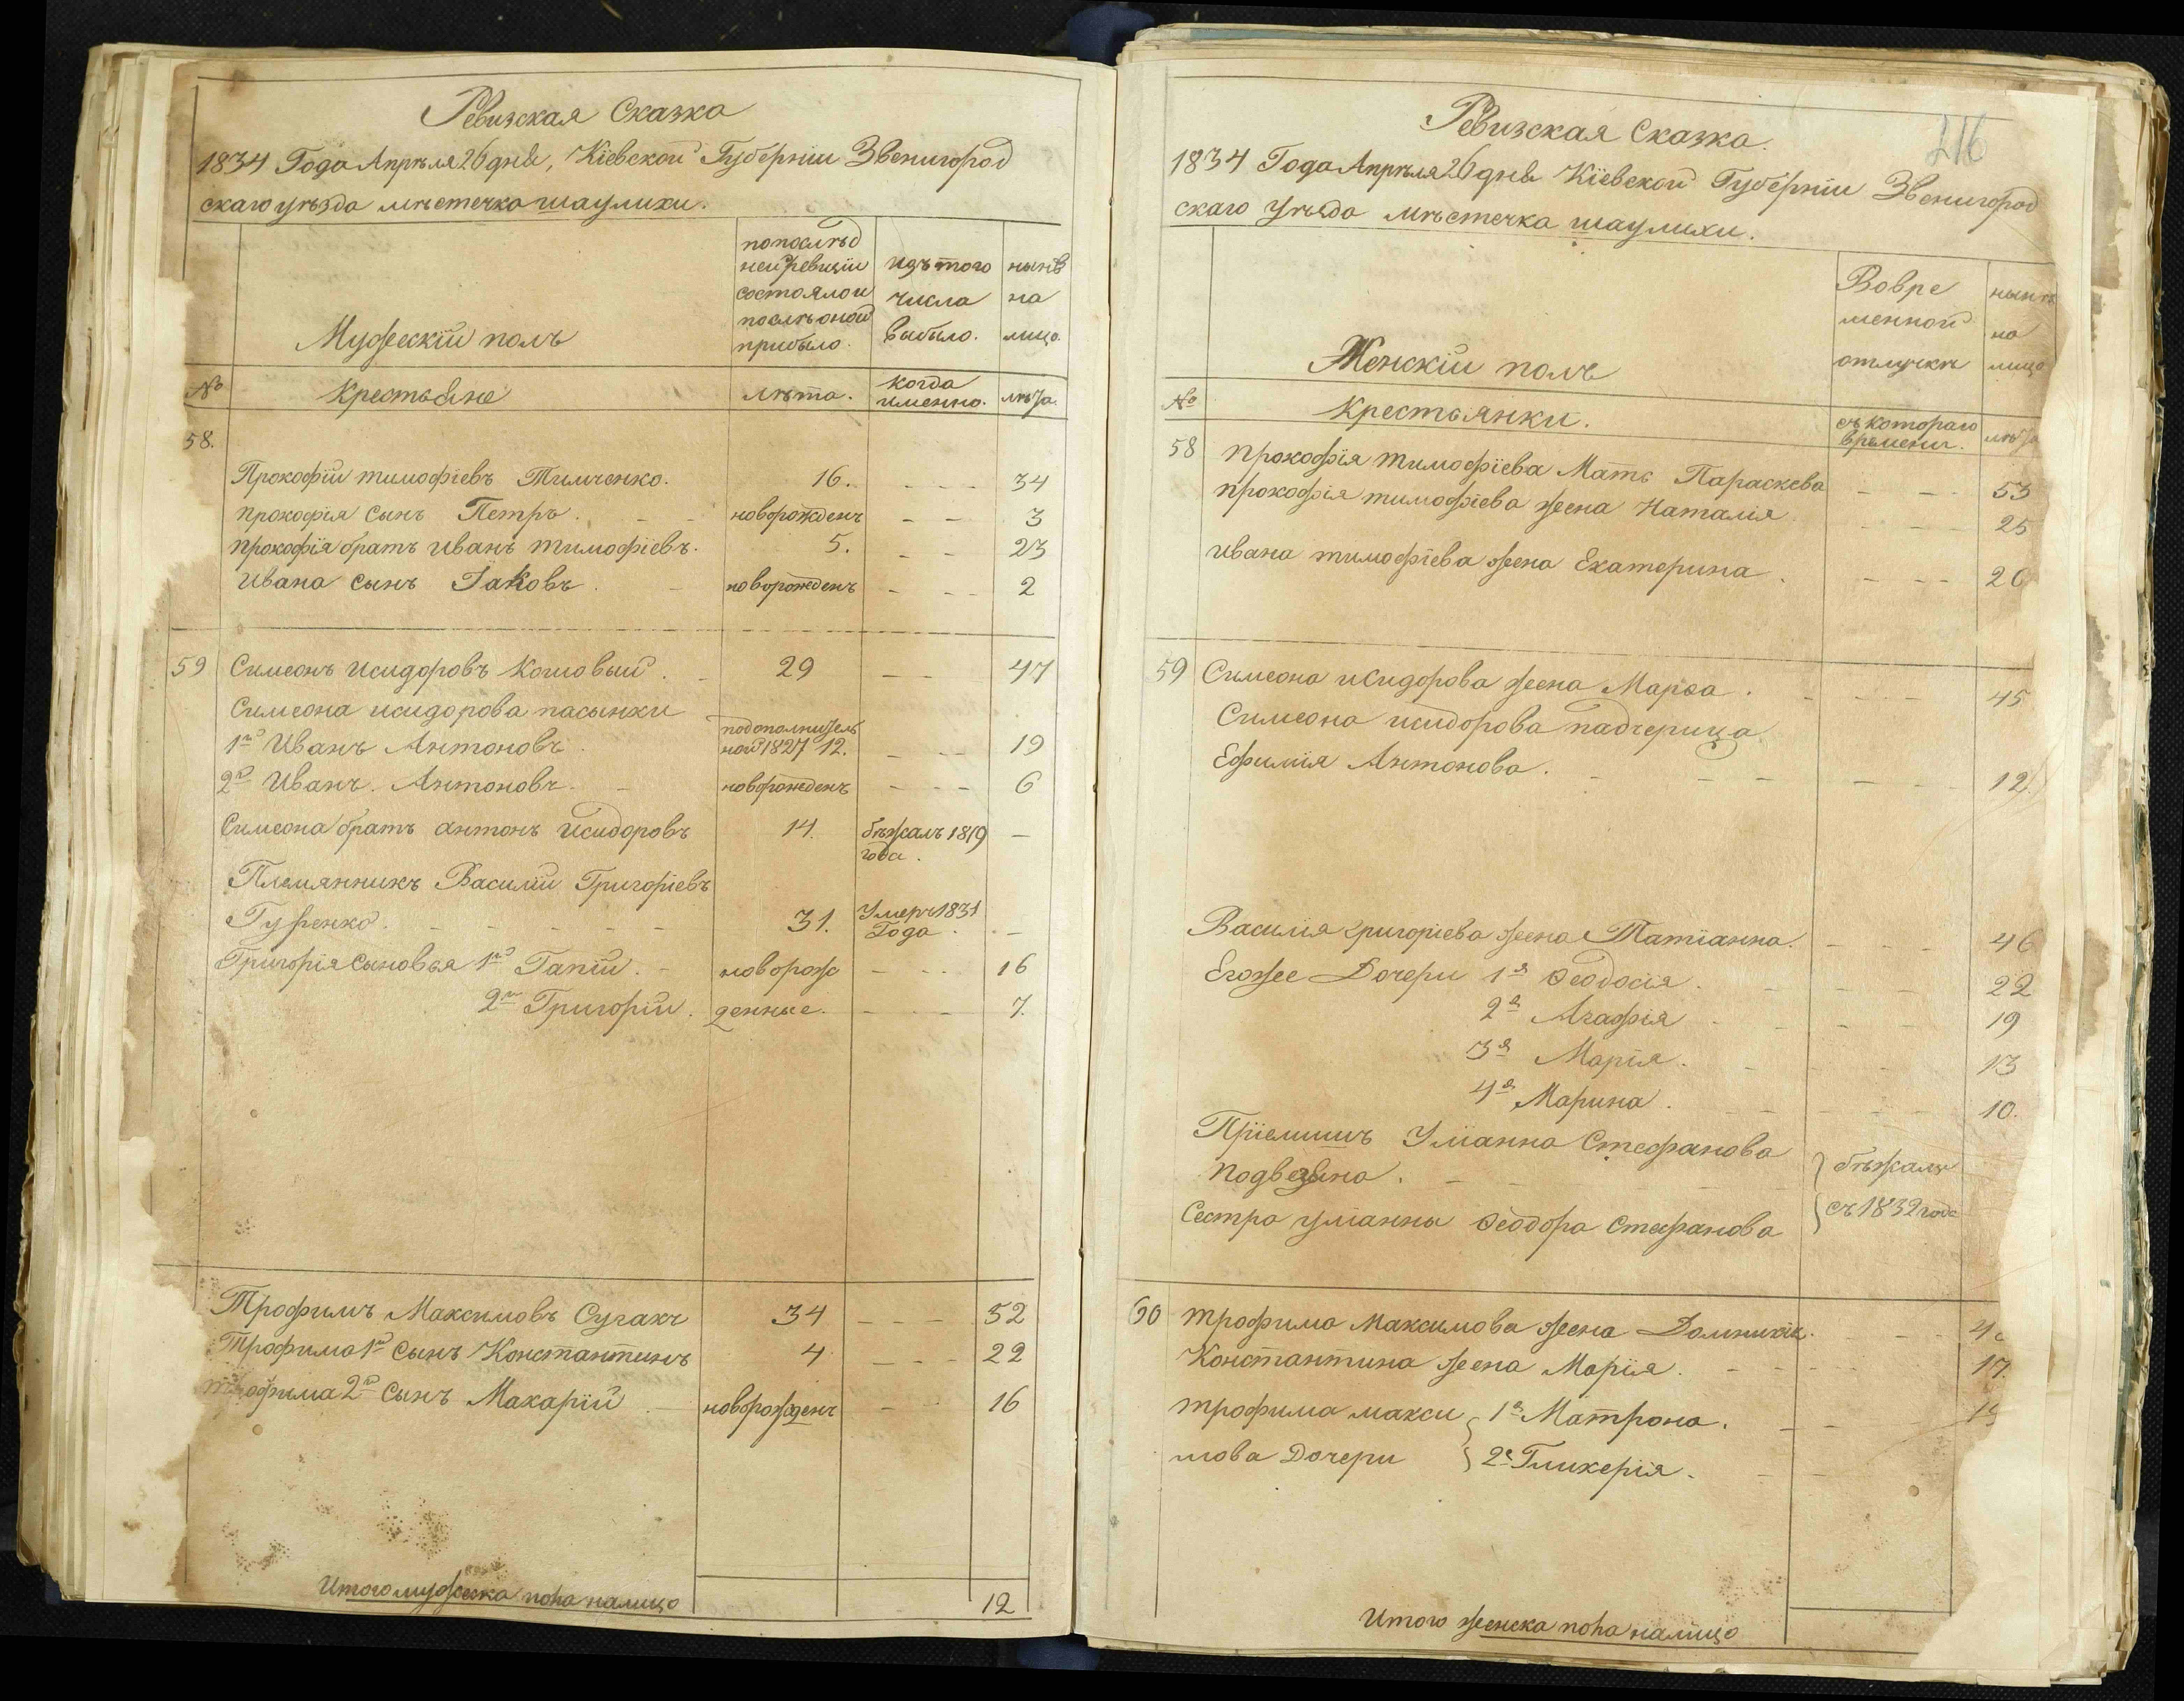 Ревизская Сказка
1834 Года Апрѣля 26 дня, Кіевской Губерніи Звенигород
скаго уѣзда мѣстечка шаулихи.
Мужескій полъ
по послѣд
ней ревизіи
состояло и
послѣ оной
прибыло.
изъ того
числа
выбыло.
нынѣ
на
лицо.
№
Крестьяне
лѣта.
когда
именно.
лѣта.
58.
Прокофій тимофіевъ Тимченко. 16. - - - 34
прокофія сынъ Петръ. - - новорожденъ - - 3
прокофія братъ иванъ тимофіевъ. 5. - - 23
Ивана сынъ Іаковъ. - новорожденъ - - - 2
59 Симеонъ исидоровъ Кошовый. - 29 - - 47
Симеона исидорова пасынки
1й Иванъ Антоновъ.
подополнитель
ной 1827 12. - - - 19
2й Иванъ. Антоновъ. - новорожденъ - - - 6
Симеона братъ антонъ исидоровъ 14. бѣжалъ 1819 -
года.
Племянникъ Василій Григоріевъ
Гуженко. - - - - - 31. Умеръ 1831
Года. -
Григорія сыновья 1й Гапій. - новорож - - - 16
2й Григорій. денные. - - - 7.
Трофимъ Максимовъ Сугакъ 34 - - - 52
Трофима 1й сынъ Константинъ 4 - - - 22
трофима 2й сынъ Макарій - новорожденъ - - 16
Итого мужеска пола налицо 12
216
Ревизская Сказка.
1834 Года Апрѣля 26 дня Кіевской Губерніи Звенигород
скаго Уѣзда мѣстечка шаулихи.
Женскій полъ
Вовре
менной
отлучкѣ
нынѣ
на
лицо
№
Крестьянки.
съ котораго
времени.
лѣта
58 прокофія тимофіева Мать Параскева - - - 53
прокофія тимофіева жена Наталія - - - 25
ивана тимофіева жена Екатерина. - - - 20
59 Симеона исидорова жена Марѳа. - - - - 45
Симеона исидорова падчерица
Ефимія Антонова. - - - - - - 12.
Василія григоріева жена Татіанна. - - - 46
Егоже Дочери 1я Ѳеодосія. - - - - 22
2я Агафія - - - - 19
3я Марія. - - - 13
4я Марина. - - - - - 10.
Пріемышъ Уліанна Стефанова
Подвезена. - - - - бѣжали
съ 1832 года
Сестра уліанны Ѳеодора Стефанова
60 трофима Максимова жена Домникія. - - -
Константина жена Марія. - - - - - 17.
трофима макси 1я Матрона. - -
мова Дочери 2я Гликерія. - -
Итого женска пола налицо